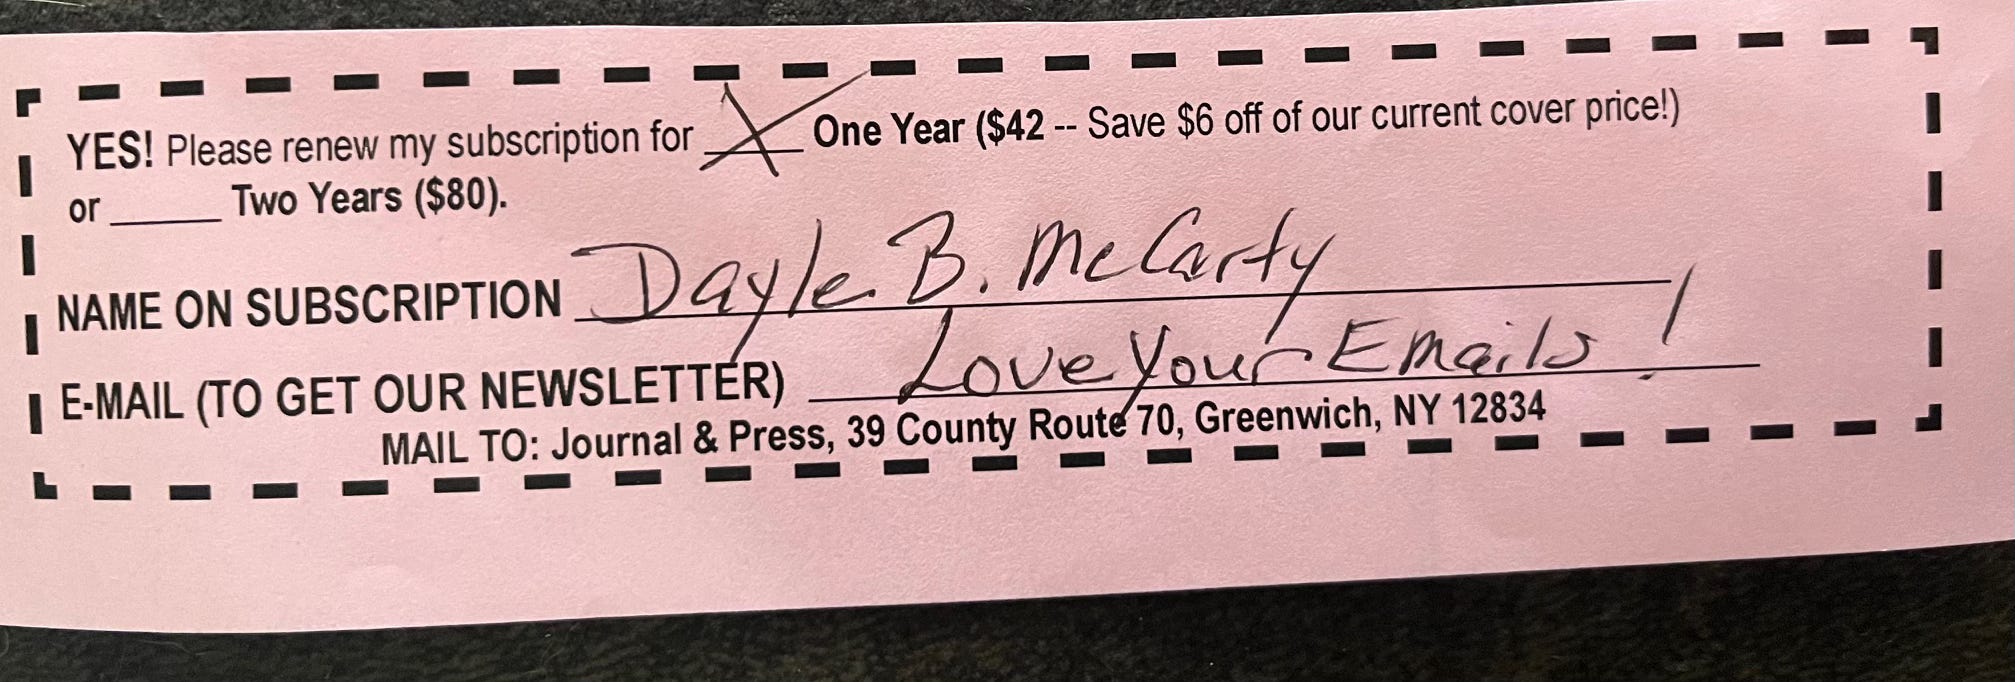 YES! Please renew my subscription for __X__ One Year ($42 -- Save $6 off of our current cover price!)
or ______ Two Years ($80).
NAME ON SUBSCRIPTION Dayle B. McCarty
E-MAIL (TO GET OUR NEWSLETTER) Love Your Emails!
MAIL TO: Journal & Press, 39 County Route 70, Greenwich, NY 12834